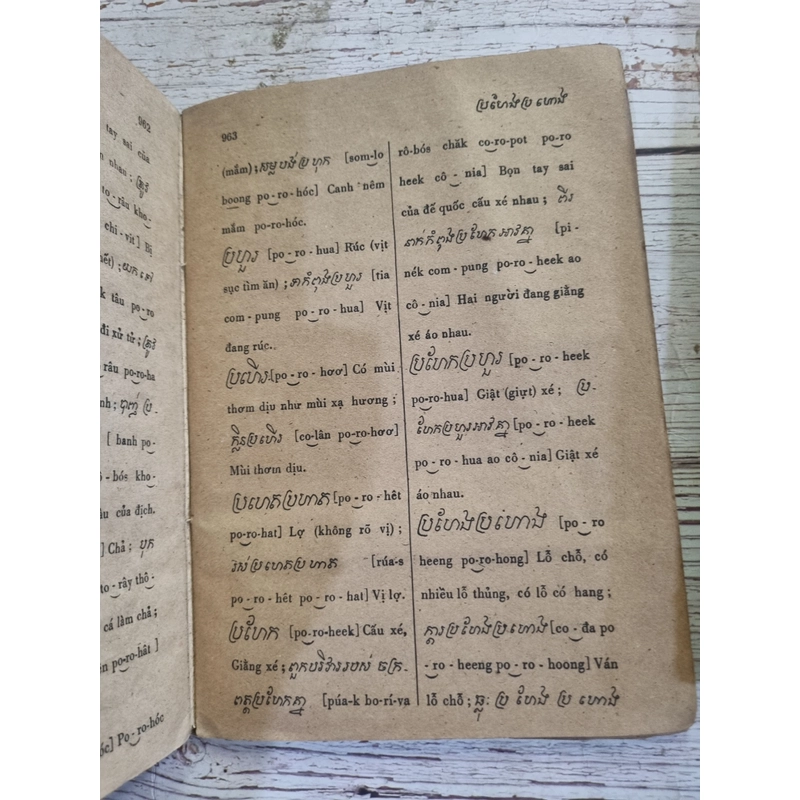 962
tay sai của
n nhau ; ត្រូវ
to - râu kho-
chi - vit] Bị
hết) ; យកទៅ
k tâu po - ro
đi xử tử ; ត្រូវ
râu po-ro-ha
nh ; បាញ់ ប្រ-
[ banh po-
bós kho-
âu của địch.
] Chả ; បុក
to - rây thô-
cá làm chả ;
po-ro-hât ]
óc] Po - ro-hóc
963
ប្រហែងប្រហោង
(mắm) ; សម្លបង់ប្រហុក [som-lo
boong po - ro - hóc] Canh nêm
mắm po-ro-hóc.
ប្រហួរ [po - ro - hua] Rúc (vịt
sục tìm ăn) ; ទាកំពុងប្រហួរ [tia
com - pung po - ro - hua] Vịt
đang rúc.
ប្រហើរ [po - ro - hơơ] Có mùi
thơm dịu như mùi xạ hương ;
ក្លិនប្រហើរ [co - lân po-ro-hơơ]
Mùi thơm dịu.
ប្រហេតប្រហាត [po - ro - hêt
po-ro-hat] Lợ (không rõ vị) ;
រស់ប្រហេតប្រហាត [rúa-s
po - ro - hêt po - ro - hat] Vị lợ.
ប្រហែក [po-ro-heek] Cấu xé,
Giằng xé ; ពួកបរិវាររបស់ ចក្រ-
ពត្តប្រហែកគ្នា [púa-k bo-rí-va
rô-bós chăk co-ro-pot po-ro
heek cô - nia] Bọn tay sai
của đế quốc cấu xé nhau ; ពីរ
នាក់កំពុងប្រហែកអាវគ្នា [pi -
nék com - pung po-ro - heek ao
cô - nia] Hai người đang giằng
xé áo nhau.
ប្រហែកប្រហួរ [po - ro - heek
po-ro-hua] Giật (giựt) xé ; ប្រ-
ហែកប្រហួរអាវគ្នា [po-ro - heek
po - ro - hua ao cô - nia] Giật xé
áo nhau.
ប្រហែងប្រហោង [po - ro
heeng po-ro-hong] Lỗ chỗ, có
nhiều lỗ thủng, có lỗ có hang ;
ក្ដារប្រហែងប្រហោង [co - đa po
- ro - heeng po - ro - hoong] Ván
lỗ chỗ ; ឆ្លុះ ប្រហែង ប្រហោង